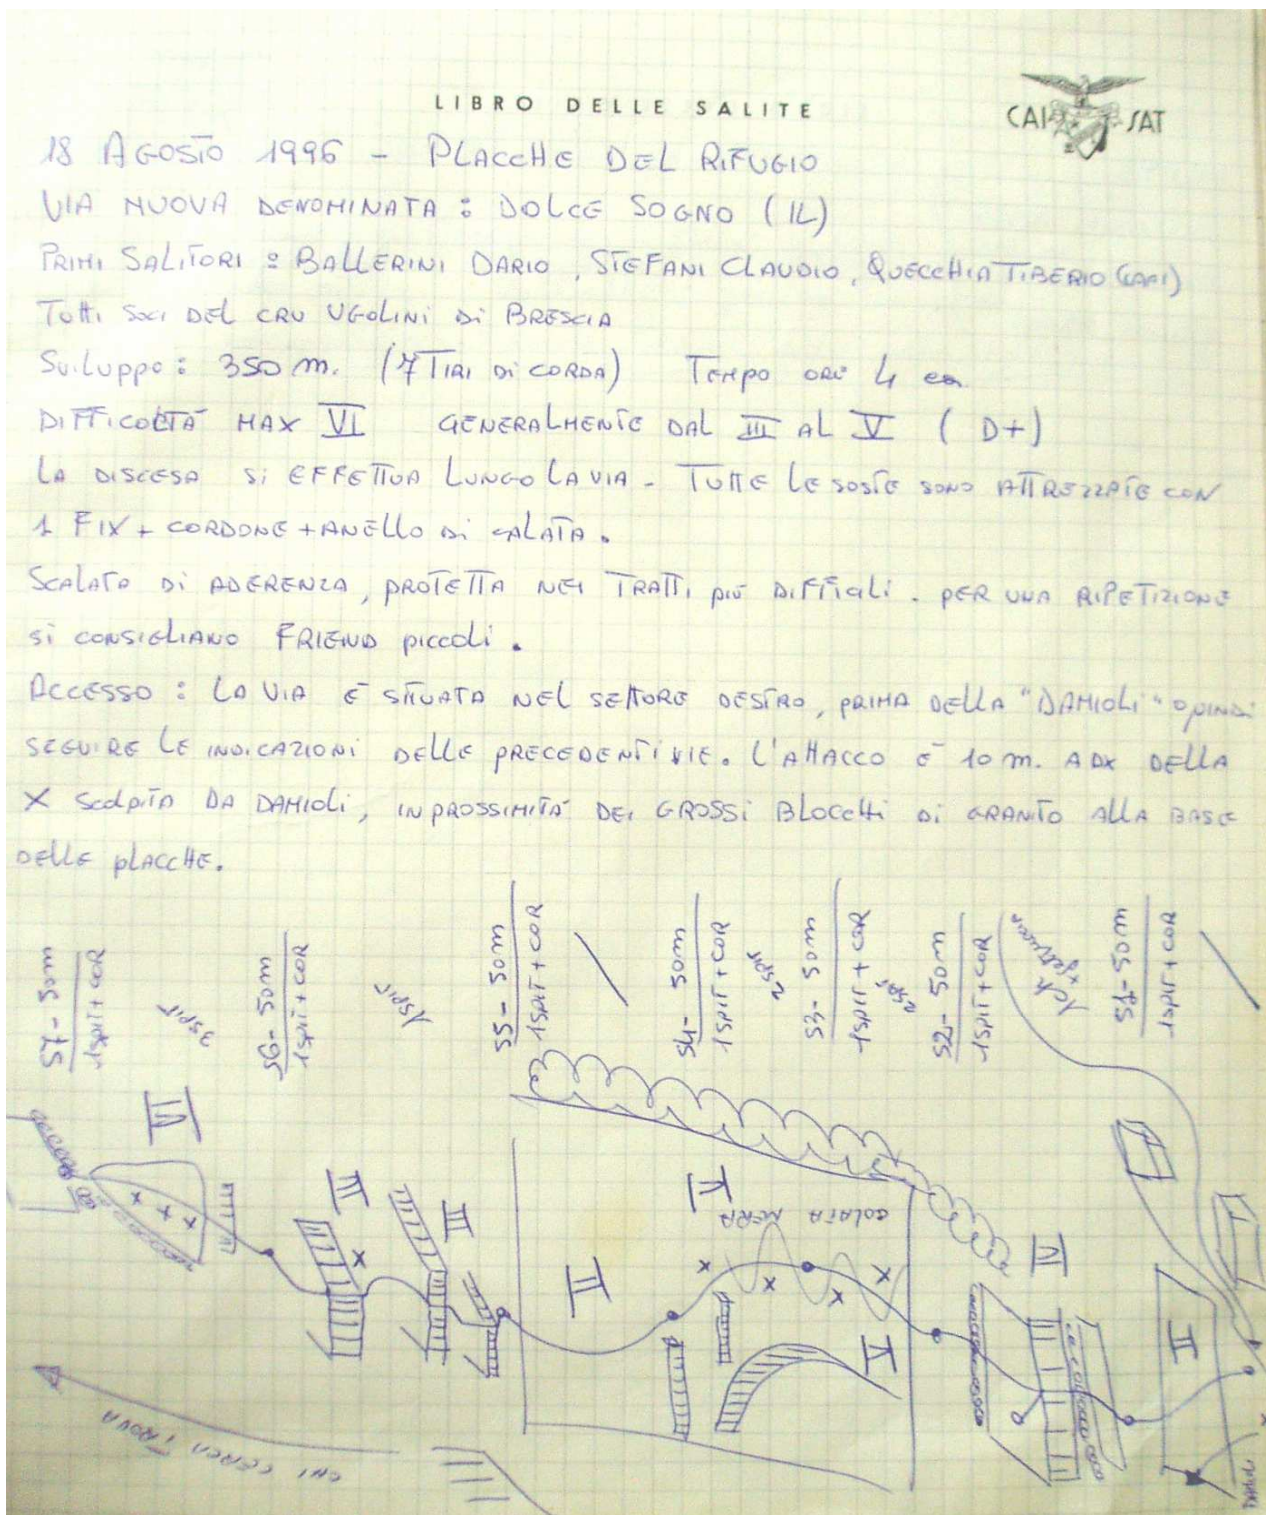 LIBRO DELLE SALITE
CAI SAT
18 AGOSTO 1996 - PLACCHE DEL RIFUGIO
VIA NUOVA DENOMINATA : DOLCE SOGNO (IL)
PRIMI SALITORI : BALLERINI DARIO, STEFANI CLAUDIO, QUECCHIA TIBERIO
TUTTI SOCI DEL GRU UGOLINI DI BRESCIA
SVILUPPO : 350 m. (7 TIRI DI CORDA) TEMPO ORE 4 ca
DIFFICOLTÀ MAX VI GENERALMENTE DAL III AL V ( D+)
LA DISCESA SI EFFETTUA LUNGO LA VIA - TUTTE LE SOSTE SONO ATTREZZATE CON
1 FIX + CORDONE + ANELLO DI CALATA.
SCALATA DI ADERENZA, PROTETTA NEI TRATTI PIÙ DIFFICILI. PER UNA RIPETIZIONE
SI CONSIGLIANO FRIEND PICCOLI.
ACCESSO : LA VIA È SITUATA NEL SETTORE DESTRO, PRIMA DELLA "DAMIOLI" QUINDI
SEGUIRE LE INDICAZIONI DELLE PRECEDENTI VIE. L'ATTACCO È 10 m. A DX DELLA
X SCOLPITA DA DAMIOLI, IN PROSSIMITÀ DEI GROSSI BLOCCHI DI GRANITO ALLA BASE
DELLE PLACCHE.
S7 - 50m
1 SPIT + COR
3 SPIT
S6 - 50m
1 SPIT + COR
1 SPIT
S5 - 50m
1 SPIT + COR
S4 - 50m
1 SPIT + COR
2 SPIT
S3 - 50m
1 SPIT + COR
2 SPIT
S2 - 50m
1 SPIT + COR
S1 - 50m
1 SPIT + COR
VI
IV
III
II
V
COLATA NERA
V
IV
II
CHI CERCA TROVA
DAMIOLI